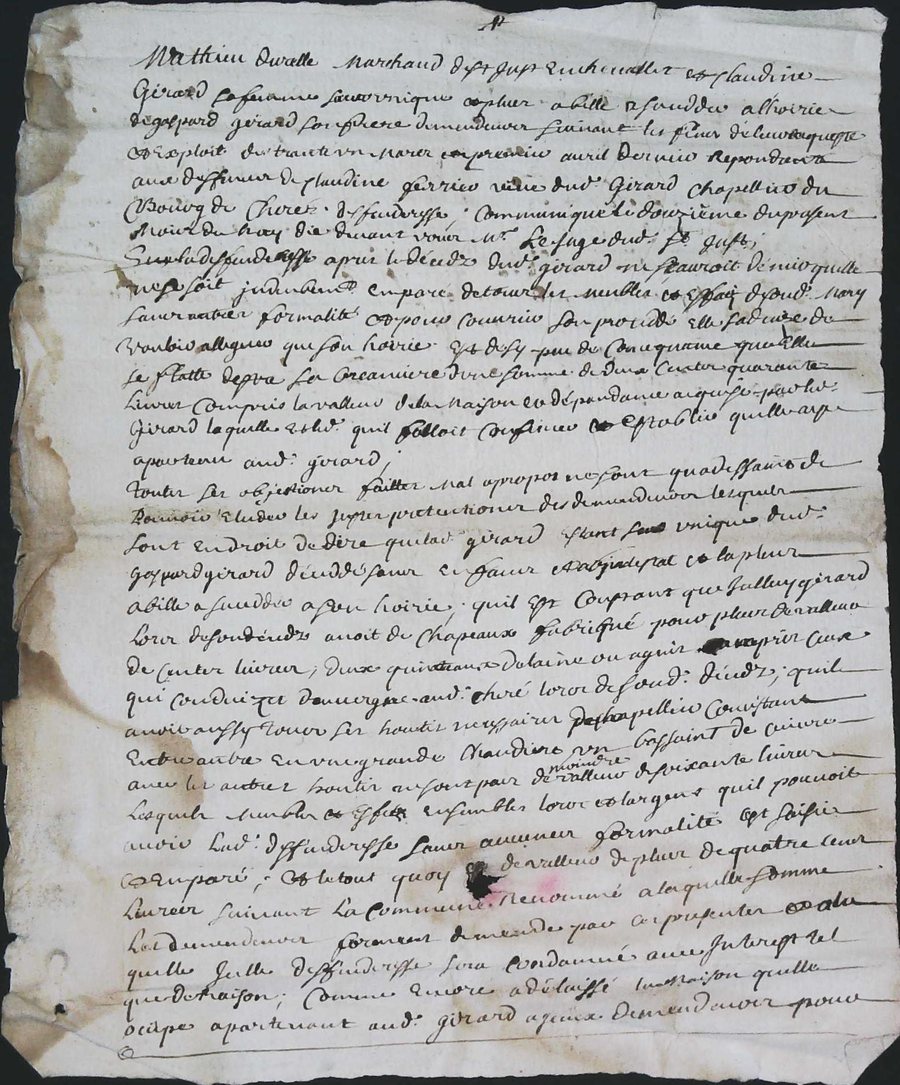 Mathieu Marchand de St Just Enchevallet et Claudine
Girard sa femme sa unique et plus abille a succeder a lhoirie
de gaspard gerard son frere demendeurs suivant les fins de leur requeste
et Exploit du trante un Mars et premier avril dernier Repondant
aux deffences de Claudine ferrier veuve dud. Girard Chapellier du
Bourg de deffenderesse, Communiqué le douzieme du present
Mois de May die devant vous Mr. Le Juge dud. St Just,
la deffenderesse apres le décedz dud. girard ne sauroit denier quelle
ne se soit emparé de tous les meubles et Effaitz de sond. Mary
sans autres formalité et pour couvrir son procedé Elle de
vouloir alleguer que son hoirie Est de sy peu de Consequance quelle
se flatte la Creanciere dune somme de deux Centz quarante
Livres Compris la valleur de la Maison et dépendance acquise par led.
Girard laquelle quil falloit et Establir quelle aye
apartenu aud. gérard,
toutes ses objections faittes mal apropos ne sont qua dessaint de
pouvoir Eluder les justes pretentions des demendeurs lesquels
sont En droit de dire que lad. gérard Estant unique dud.
Gaspard gérard décédé sans Enfans et la plus
abille a succeder a son hoirie, quil Est Constant que Julluy gérard
Lors de son décedz avoit de Chapeaux fabriqué pour plus de valleur
de Centz livres, deux quintaux de laine ou agnis compris Ceux
qui dauvergne aud. lors de sond. décedz, quil
avoit aussy tous les houtils nessaires de chapellier Consistant
Entre autre En une grande Chaudiere un bassaint de cuivre
avec les autres houtils ne sont pas de moindre valleur de soixante livres
Lesquels Meubles et Effaitz Ensembles lors et largent quil pouvoit
avoir Lad. deffenderesse sans aucunes formalité Est saisie
et Emparé, et le tout quoy de valleur de plus de quatre Cents
Livres suivant La Commune Renommé a laquelle somme
Les demendeurs forment demende par ces presentes et a la
quelle Jcelle deffenderesse sera Condamné avec Interest tel
que de raison, Comme Encore a delaissé la Maison quelle
ocupe apartenant aud. gérard ageux demendeurs pour